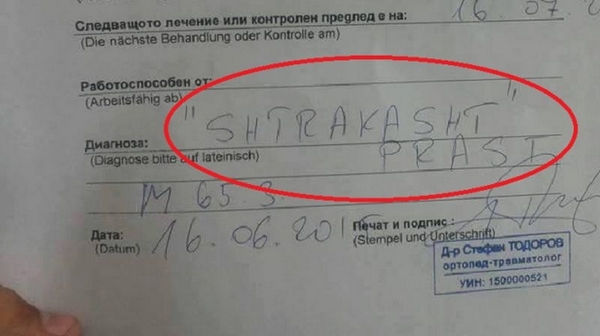 Следващото лечение или контролен предлед е на: 16.07.2
(Die nächste Behandlung oder Kontrolle am)
Работоспособен от:
(Arbeitsfähig ab)
"SHTRAKASHT"
Диагноза: PRAST
(Diagnose bitte auf lateinisch)
M 65.3.
Дата: 16.06.2015 Печат и подпис:
(Datum) (Stempel und Unterschrift)
Д-р Стефан ТОДОРОВ
ортопед-травматолог
УИН: 1500000521